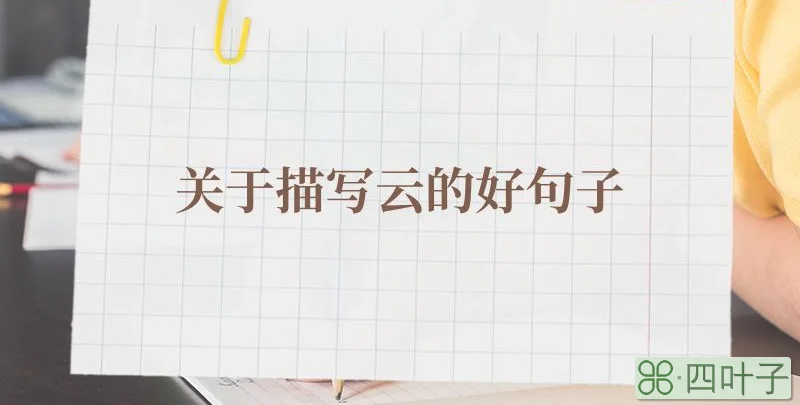 关于描写云的好句子
四叶子